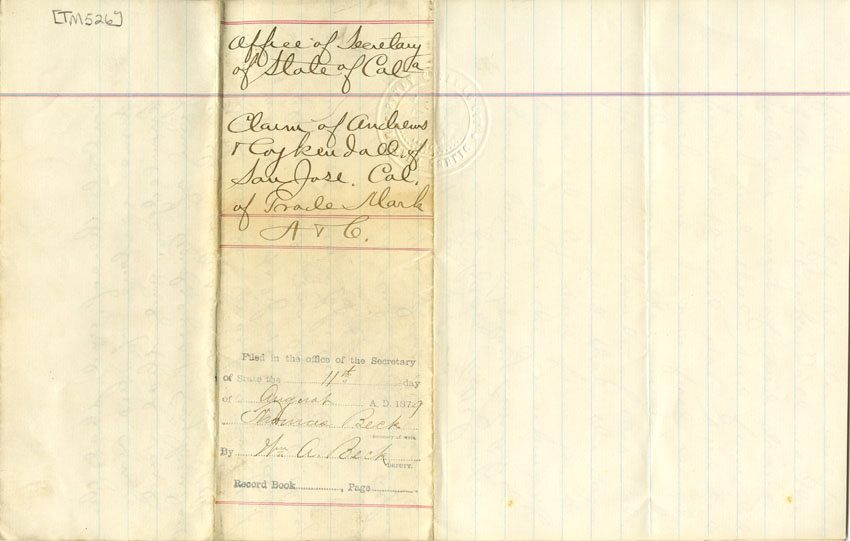 [TM526]
Office of Secretary
of State of Cala
Claim of Andrews
& Coykendall of
San Jose. Cal.
of Trade Mark
A & C.
Filed in the office of the Secretary
of State the 11th day
of August A. D. 1879
Thomas Beck
Secretary of State.
By Wm A. Beck
DEPUTY.
Record Book............, Page............